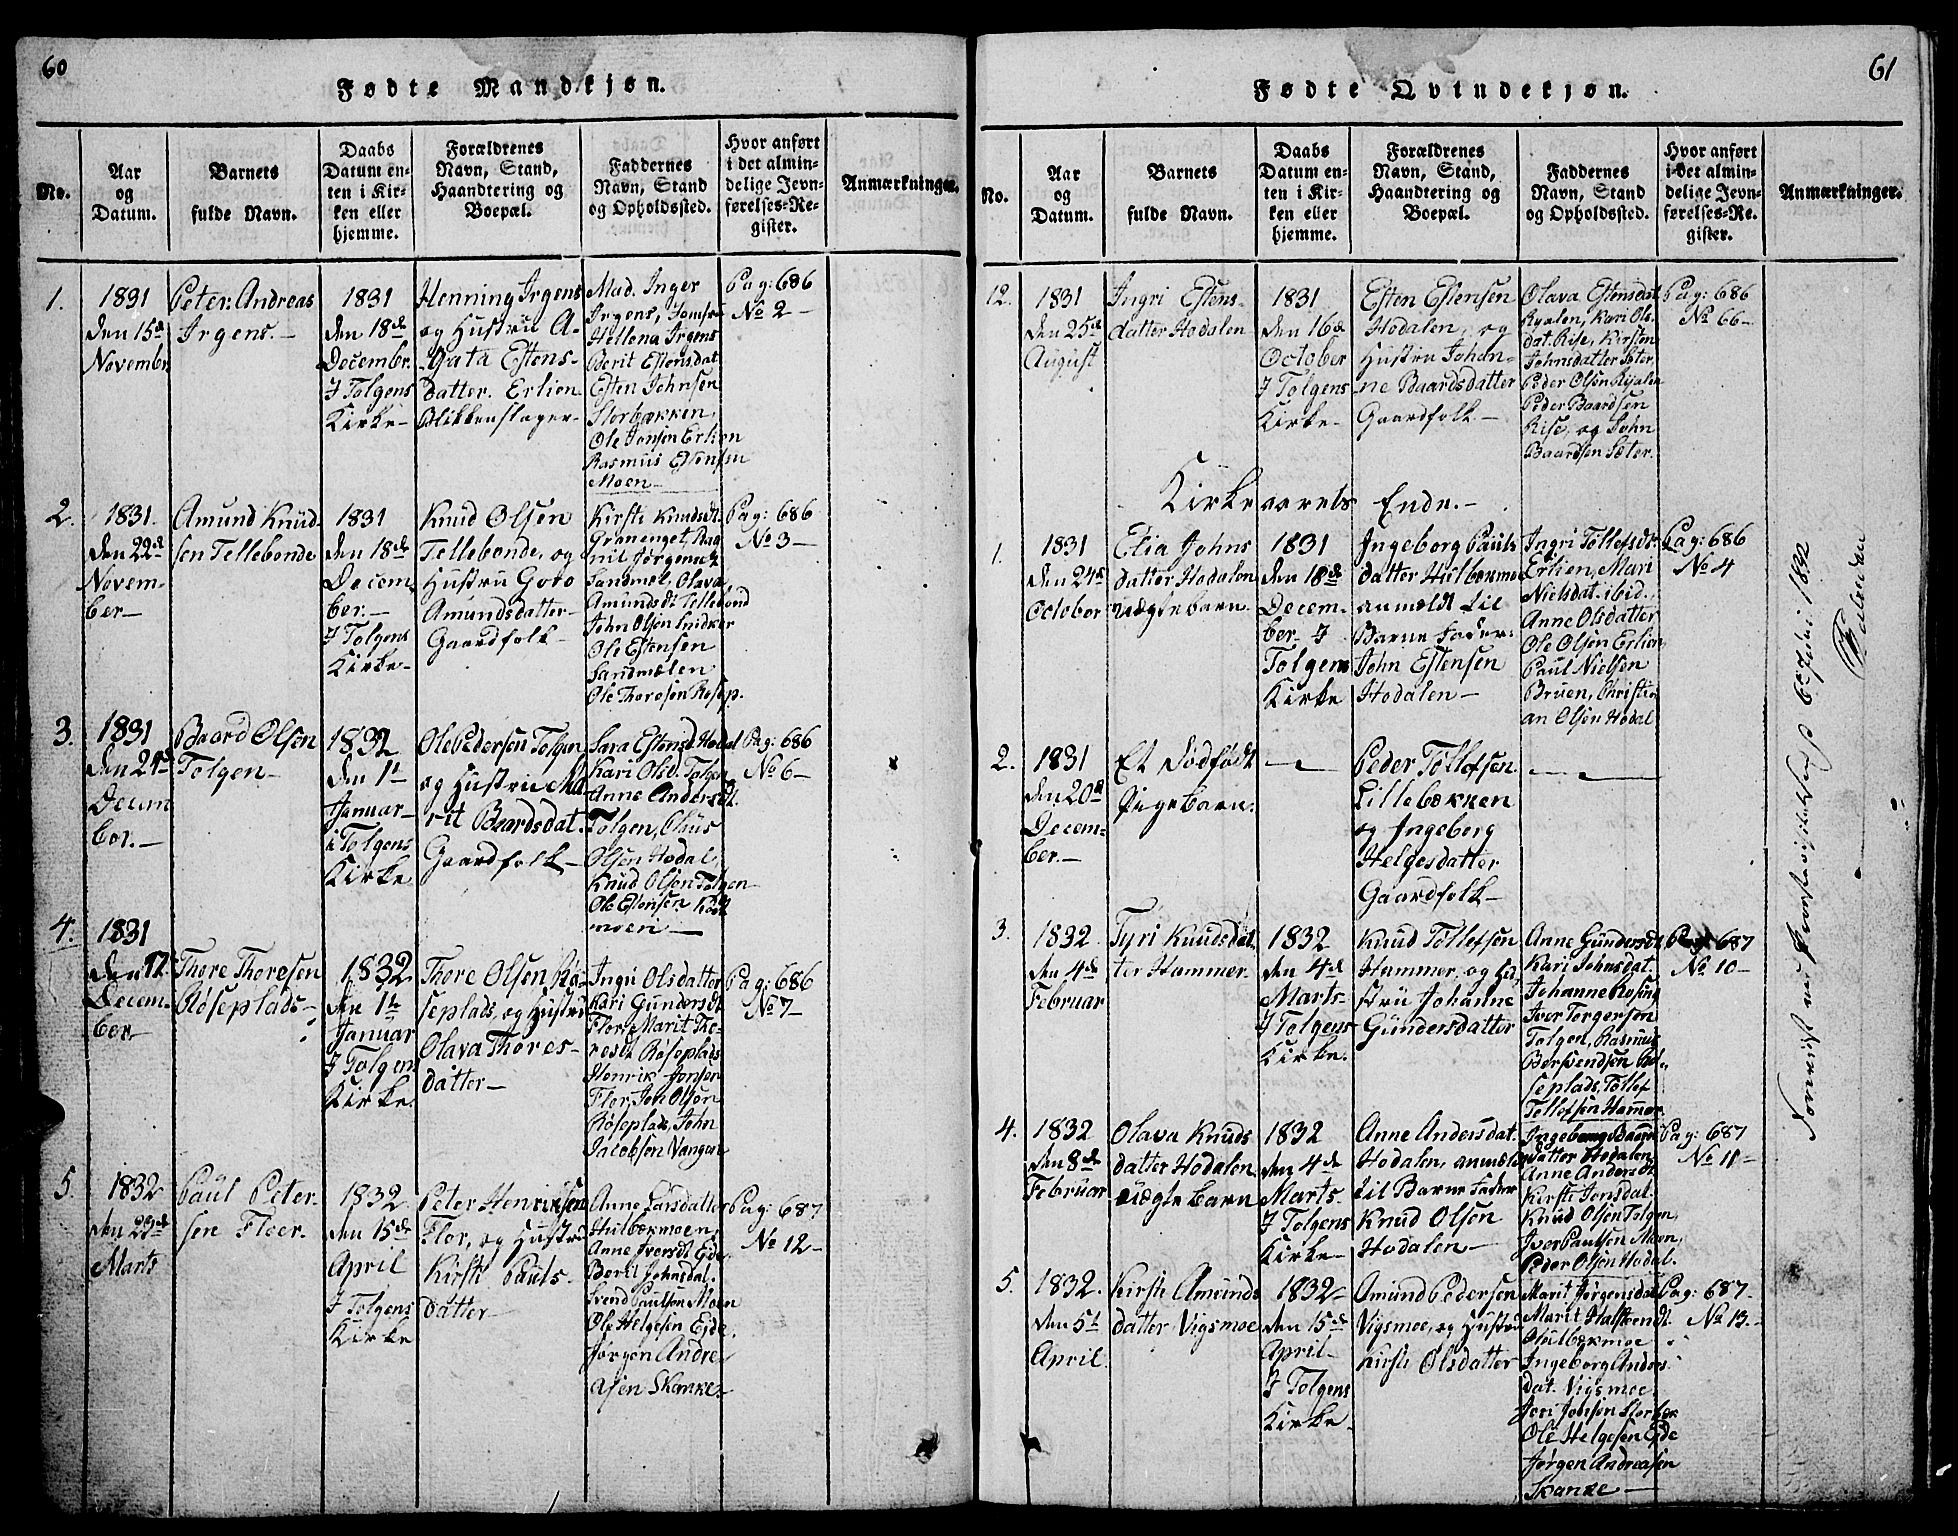 60
Fødte Mandkjøn.
No.
Aar
og
Datum.
Barnets
fulde Navn.
Daabs
Datum en-
ten i Kir-
ken eller
hjemme.
Forældrenes
Navn, Stand,
Haandtering og
Boepæl.
Faddernes
Navn, Stand
og Opholdssted.
Hvor anført
i det almin-
delige Jevn-
førelses-Re-
gister.
Anmærkninger.
1.
1831
den 15de
Novembr.
Peter Andreas
Irgens.-
1831
den 18de
Decembr.
I Tolgens
Kirke-
Henning Irgens
og Hustru A-
gata Estens-
datter. Erlien
Blikkenslager-
Mad. Inger
Irgens, Jomfr.
Hellena Irgens
Berit Estensdat
Esten Johnsen
Storbækken,
Ole Jonsen Erlien
Rasmus Estensen
Moen-
Pag: 686
No 2-
2.
1831.
den 22de
Novem-
ber-
Amund Knud-
sen Tellebonde
1831
den 18de
Decem-
ber.-
I Tolgens
Kirke-
Knud Olsen
Tellebonde, og
Hustru Goro
Amundsdatter-
Gaardfolk-
Kirsti Knudsdt.
Granenget, Rag
nil Jørgensdt
Sandmæl, Olava
Amundsdt Tellebond
John Olsen Snidker
Ole Estensen
Sandmælen
Ole Thoresen Røsep.
Pag: 686
No 3-
3.
1831
den 24de
Decem
ber.-
Baard Olsen
Tolgen-
1832
den 1t
Januar-
i Tolgens
Kirke
Ole Pedersen Tolgen
og Hustru Ma
rit Baardsdat.
Gaardfolk-
Sara Estensd. Hodal
Kari Olsd. Tolgen
Anne Andersdt.
Tolgen, Oluus
Olsen Hodal,
Knud Olsen Tolgen
Ole Estensen Kaas
moen-
Pag: 686
No 6-
4.
1831
den 12
Decem-
ber-
Thore Thoresen
Røseplads-
1832
den 1t
Januar
I Tolgens
Kirke.
Thore Olsen Rø-
seplads, og Hustru
Olava Thores-
datter-
Ingri Olsdatter
Kari Gundersdt
Flor, Marit Tho-
resdt Røseplads
Henrik Jonsen
Flor, Jon Olsen
Røseplads, John
Jacobsen Vangen
Pag: 686
No 7-
5.
1832
den 23de
Marts
Paul Peter-
sen Floer.
1832.
den 15de
April
I Tolgens
Kirke
Peter Henriksen
Flor, og Hustru
Kirsti Pauls-
datter-
Anne Larsdatter
Hulbækmoen,
Anne Iversdt Eide
Berit Johnsdat.
Svend Paulsen Moen
Ole Helgesen Ejde.
Jørgen Andre-
asen Skanke.-
Pag: 687
No 12-
61
Fødte Qvindekjøn.
No.
Aar
og
Datum.
Barnets
fulde Navn.
Daabs
Datum en-
ten i Kir-
ken eller
hjemme.
Forældrenes
Navn, Stand,
Haandtering og
Boepæl.
Faddernes
Navn, Stand
og Opholdssted.
Hvor anført
i det almin-
delige Jevn-
førelses-Re.
gister.
Anmærkninger.
12.
1831
den 25de
August
Ingri Estens-
datter Hodalen
1831
den 16de
October
I Tolgens
Kirke-
Esten Estensen
Hodalen, og
Hustru Johan-
ne Baardsdatter
Gaardfolk-
Olava Estensdat.
Ryalen, Kari Ols
dat. Rise, Kirsten
Johnsdatter Sæter
Peder Olsen Ryalen
Peder Baardsen
Rise, og John
Baardsen Sæter.
Pag: 686
No 66-
Kirkeaarets Ende.-
1.
1831
den 24de
October
Elia Johns
datter Hodalen
uægte barn.
1831
den 18de
Decem-
ber. I
Tolgens
Kirke
Ingeborg Pauls
datter Hulbækmoe
anmeldt til
Barne Fader:
John Estensen
Hodalen-
Ingri Tollefsdt.
Erlien, Mari
Nielsdat. ibid.,
Anne Olsdatter
Ole Olsen Erlien
Paul Nielsen
Bruen, Christi
an Olsen Hodal
Pag: 686
No 4
2.
1831
den 20de
Decem-
ber.-
Et Dødfødt
Pigebarn.
-
Peder Tollefsen
Lillebækken
og Ingeborg
Helgesdatter
Gaardfolk-
-
3.
1832.
den 4de
Februar
Tyri Knudsdat
ter Hammer.
1832
den 4de
Marts-
I Tolgens
Kirke.
Knud Tollefsen
Hammer, og Hu
stru Johanne
Gundersdatter
Anne Gundersdt.
Kari Johnsdat.
Johanne Rosing
Iver Torgersen
Tolgen, Rasmus
Bersvendsen Rø-
seplads, Tollef
Tollefsen Hammer
Pag: 687
No 10-
4.
1832
den 8de
Februar
Olava Knuds
datter Hodalen
uægte barn
1832
den 4de
Marts-
I Tolgens
Kirke-
Anne Andersdat.
Hodalen, anmeldt
til Barne Fader
Knud Olsen
Hodalen-
Ingeborg Baards
datter Hodalen
Anne Andersdt.
Kirsti Jonsdat.
Knud Olsen Tolgen,
Iver Paulsen Moen,
Peder Olsen Hodal.
Pag: 687
No 11-
5.
1832.
den 5t
April.
Kirsti Amunds
datter Vigsmoe
1832-
den 15de
April-
I Tolgens
Kirke-
Amund Pedersen
Vigsmoe, og Hustru
Kirsti Olsdatter
Marit Jørgensdat
Marit Halstensdt.
Hulbækmoe
Ingeborg Anders
dat. Vigsmoe.
Jon Jonsen Storbæk
Ole Helgesen Ejde
Jørgen Andreasen
Skanke-
Pag: 687-
No 13-